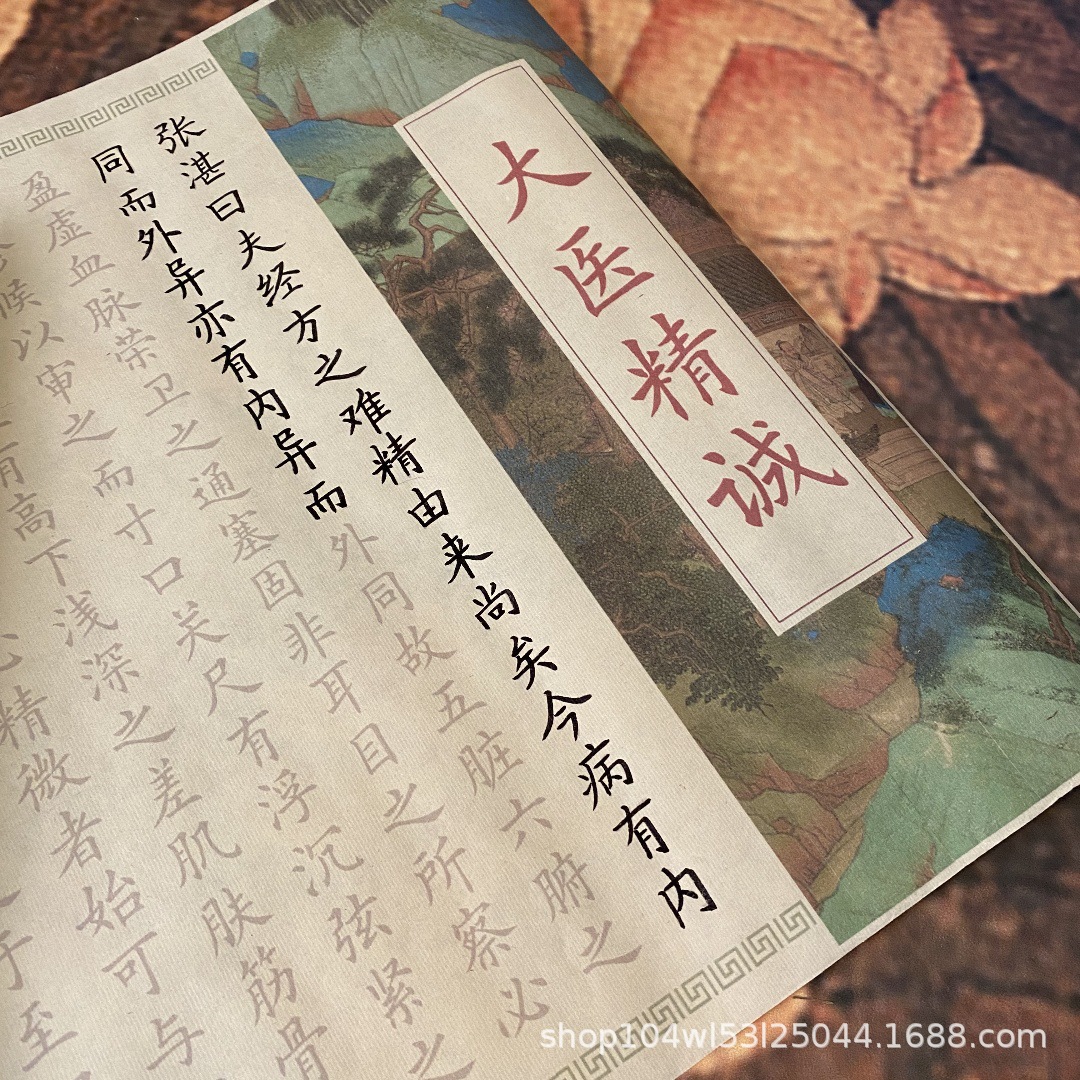 大医精诚
张湛曰夫经方之难精由来尚矣今病有内
同而外异亦有内异而外同故五脏六腑之
盈虚血脉荣卫之通塞固非耳目之所察必
候以审之而寸口关尺有浮沉弦紧之
有高下浅深之差肌肤筋骨
心精微者始可与
于至
shop104wl53l25044.1688.com